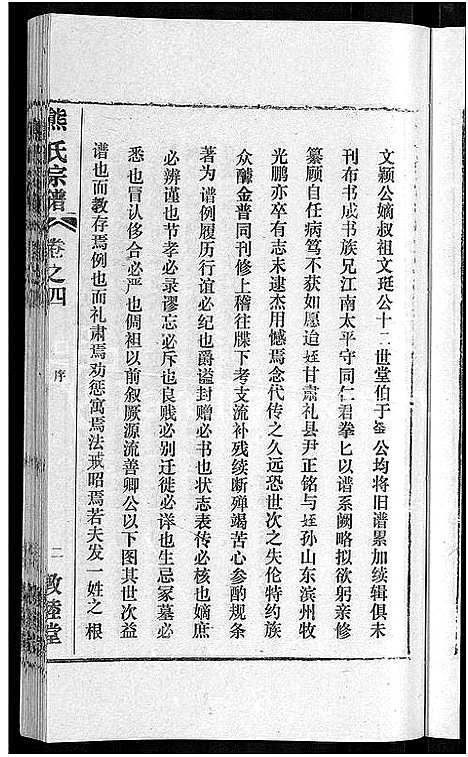 文颖公嫡叔祖文珽公十二世堂伯于 公均将旧谱累加续辑俱未
刊布书成书族兄江南太平守同仁君拳匕以谱系阙略拟欲躬亲修
纂顾自任病笃不获如愿迨姪甘肃礼县尹正铭与姪孙山东滨州牧
光鹏亦卒有志未逮杰用憾焉念代传之久远恐世次之失伦特约族
众醵金普同刊修上稽往牒下考支流补残续断殚竭苦心参酌规条
著为谱例履历行谊必纪也爵谥封赠必书也状志表传必核也嫡庶
必辨谨也节孝必录谬忘必斥也良贱必别迁徙必详也生忌冢墓必
悉也冒认侈合必严也倜祖以前叙厥源流善卿公以下图其世次益
谱也而教存焉例也而礼肃焉劝惩寓焉法戒昭焉若夫发一姓之根
熊氏宗谱
卷之四
序
二
敦睦堂